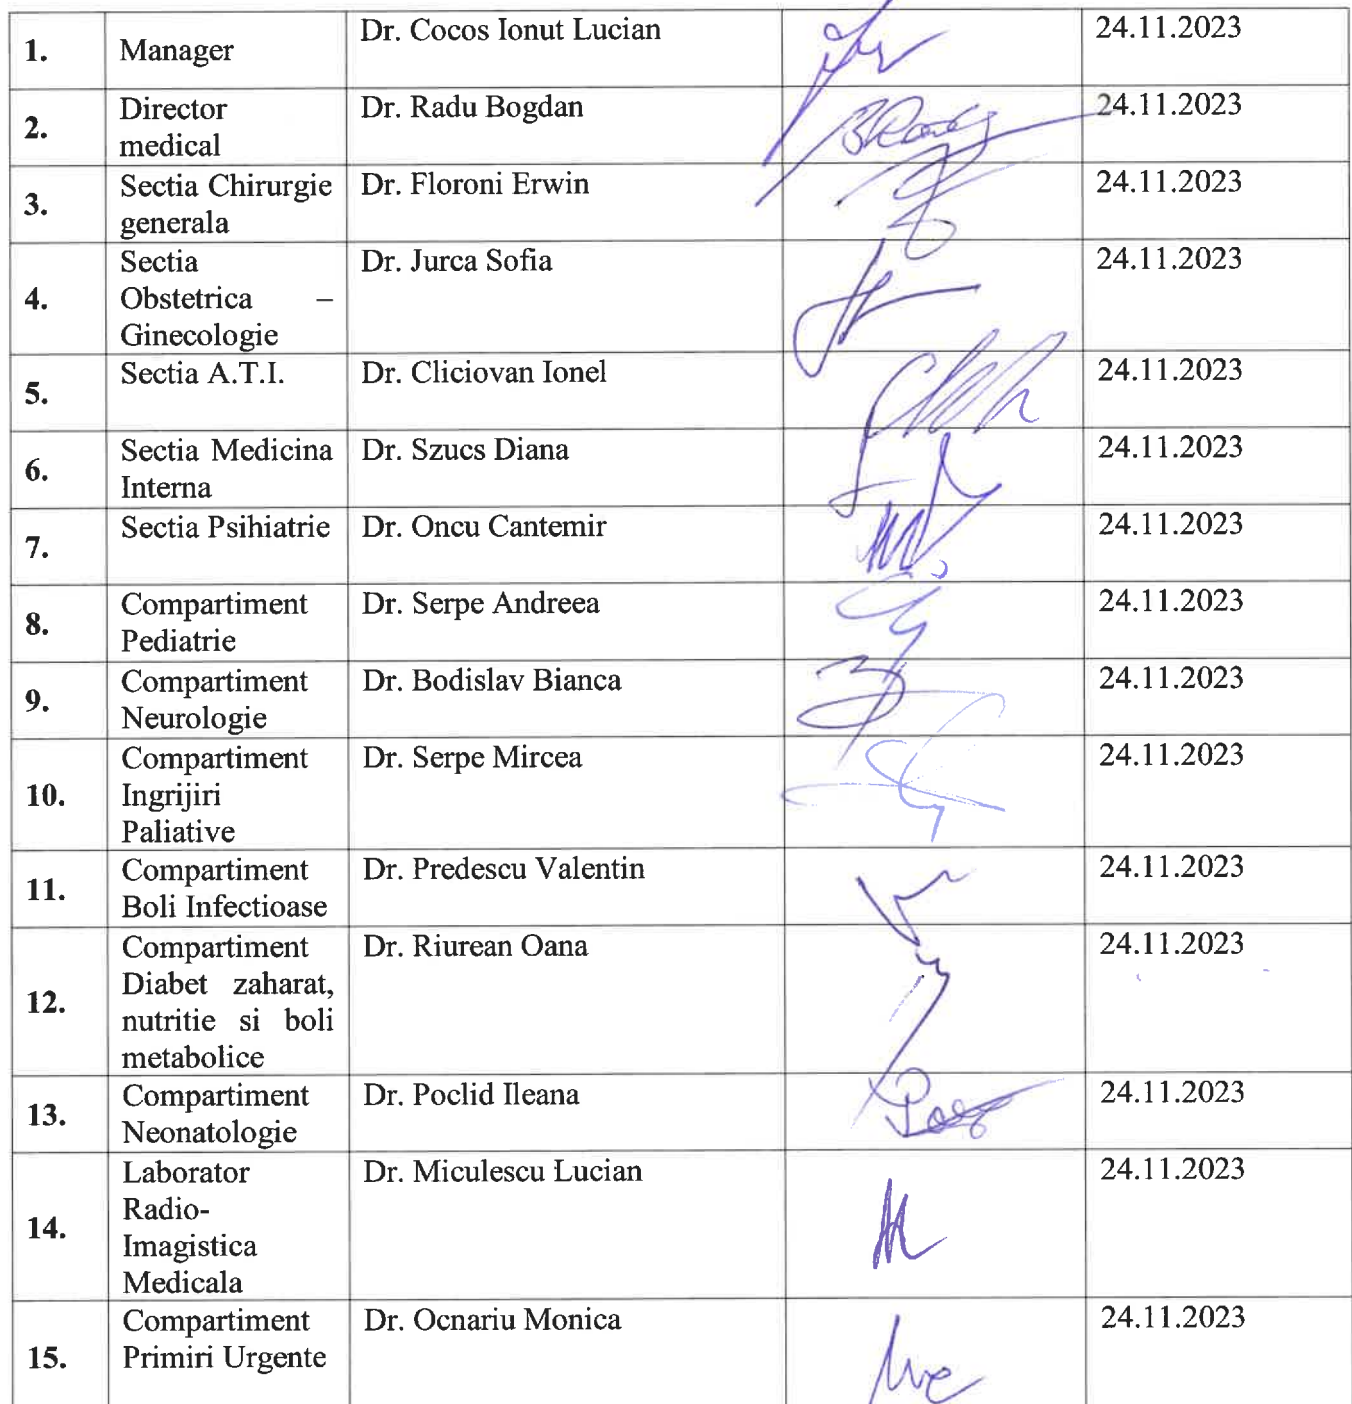 1. Manager Dr. Cocos Ionut Lucian 24.11.2023
2. Director medical Dr. Radu Bogdan 24.11.2023
3. Sectia Chirurgie generala Dr. Floroni Erwin 24.11.2023
4. Sectia Obstetrica – Ginecologie Dr. Jurca Sofia 24.11.2023
5. Sectia A.T.I. Dr. Cliciovan Ionel 24.11.2023
6. Sectia Medicina Interna Dr. Szucs Diana 24.11.2023
7. Sectia Psihiatrie Dr. Oncu Cantemir 24.11.2023
8. Compartiment Pediatrie Dr. Serpe Andreea 24.11.2023
9. Compartiment Neurologie Dr. Bodislav Bianca 24.11.2023
10. Compartiment Ingrijiri Paliative Dr. Serpe Mircea 24.11.2023
11. Compartiment Boli Infectioase Dr. Predescu Valentin 24.11.2023
12. Compartiment Diabet zaharat, nutritie si boli metabolice Dr. Riurean Oana 24.11.2023
13. Compartiment Neonatologie Dr. Poclid Ileana 24.11.2023
14. Laborator Radio-Imagistica Medicala Dr. Miculescu Lucian 24.11.2023
15. Compartiment Primiri Urgente Dr. Ocnariu Monica 24.11.2023